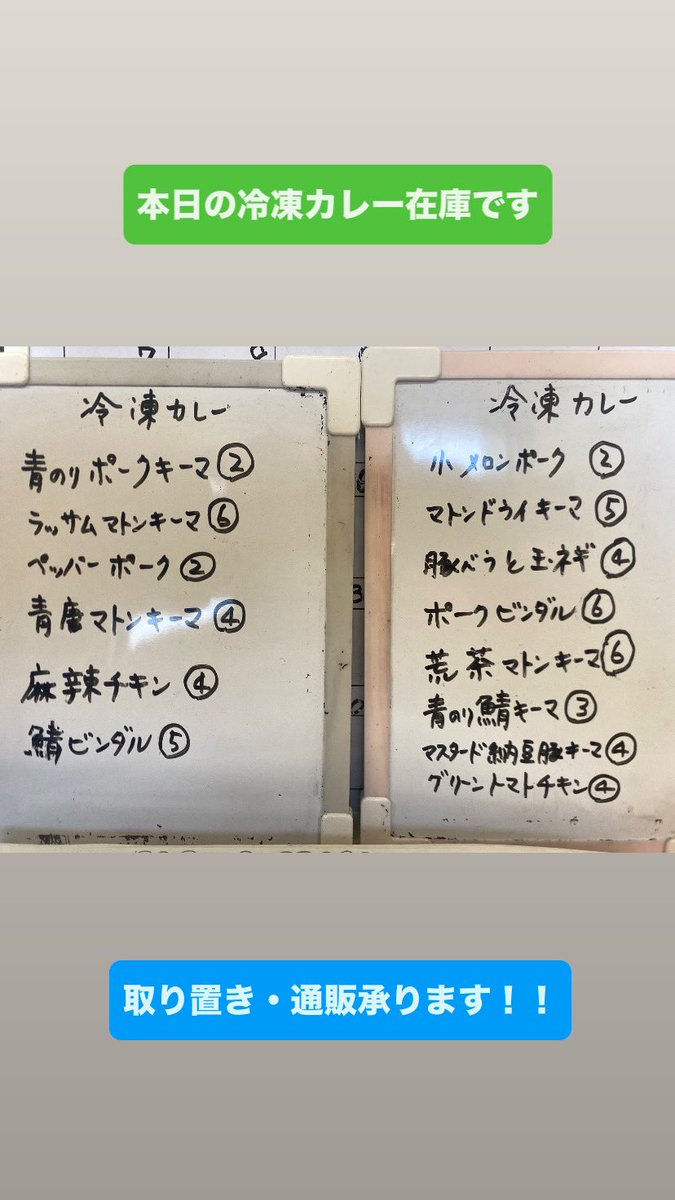 本日の冷凍カレー在庫です
冷凍カレー
青のりポークキーマ②
ラッサムマトンキーマ⑥
ペッパーポーク②
青唐マトンキーマ④
麻辣チキン④
鯖ビンダル⑤
冷凍カレー
小メロンポーク②
マトンドライキーマ⑤
豚バラと玉ネギ④
ポークビンダル⑥
荒茶マトンキーマ⑥
青のり鯖キーマ③
マスタード納豆豚キーマ④
グリーントマトチキン④
取り置き・通販承ります！！